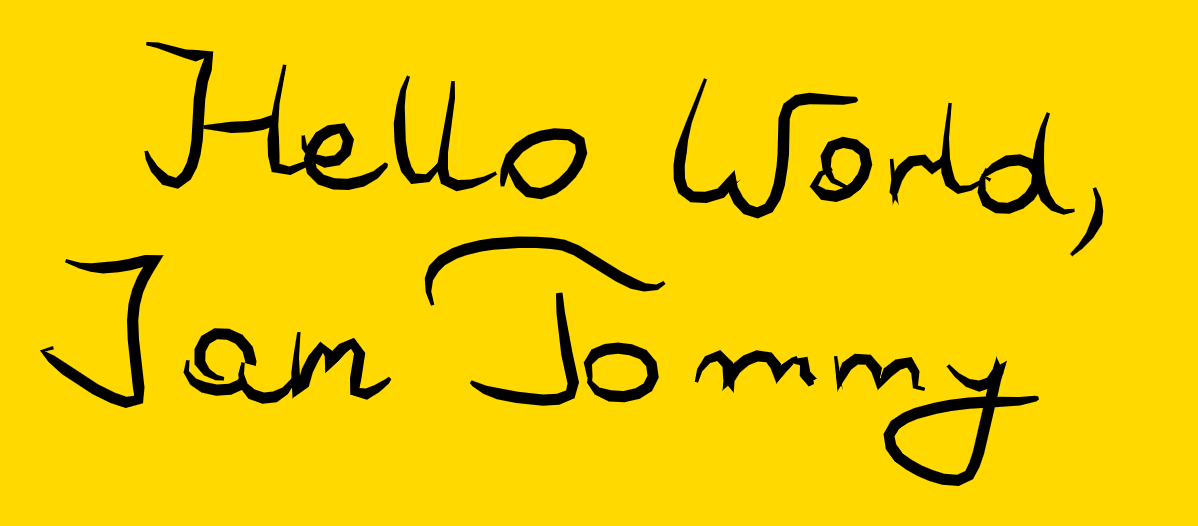 Hello World,
I am Tommy